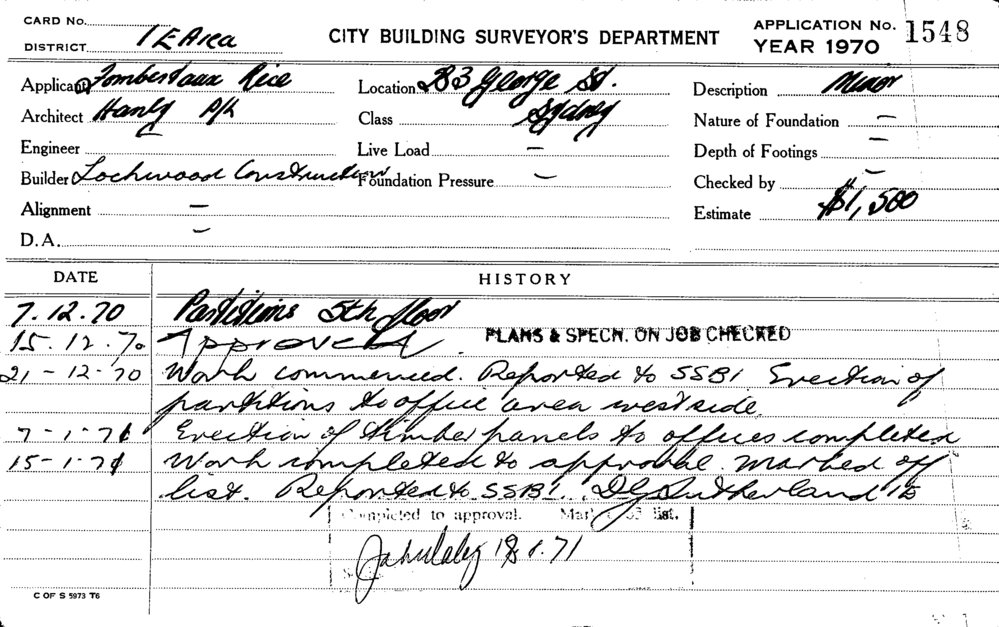 CARD No.
DISTRICT 1E Area
CITY BUILDING SURVEYOR'S DEPARTMENT
APPLICATION No. 1548
YEAR 1970
Applicant Fombertaux Rice
Location 33 George St.
Description Minor
Architect Hanly P/L
Class Sydney
Nature of Foundation —
Engineer
Live Load —
Depth of Footings —
Builder Lochwood Construction
Foundation Pressure —
Checked by —
Alignment —
Estimate $1,500
D.A. —
DATE HISTORY
7.12.70 Partitions 5th floor
15.12.70 Approved PLANS & SPECN. ON JOB CHECKED
21-12-70 Work commenced. Reported to SSB1 Erection of
partitions to office area west side.
7-1-71 Erection of timber panels to offices completed
15-1-71 Work completed to approval. Marked off
list. Reported to SSB1. D G Sutherland 1E
Completed to approval. Mark off list.
18.1.71
C OF S 5973 T6